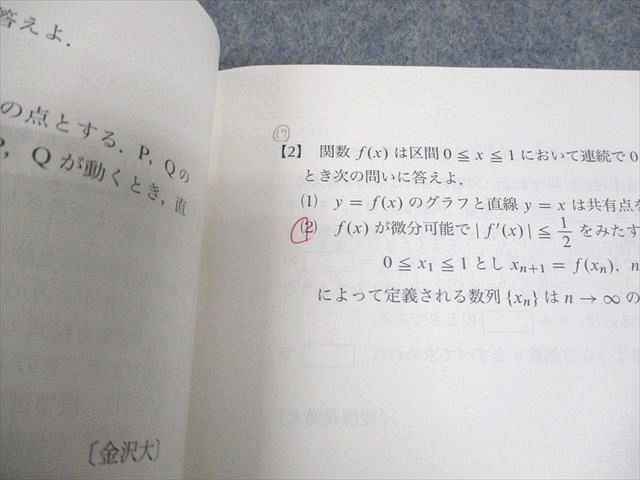 答えよ.
の点とする. P, Qの
P, Qが動くとき, 直
〔金沢大〕
(ワ)
【2】 関数 f(x) は区間 0 ≦ x ≦ 1 において連続で 0
とき次の問いに答えよ.
(1) y = f(x) のグラフと直線 y = x は共有点を
(2) f(x) が微分可能で | f′(x) | ≦ 1/2 をみたす
0 ≦ x₁ ≦ 1 とし xₙ₊₁ = f(xₙ), n
によって定義される数列 {xₙ} は n → ∞ の